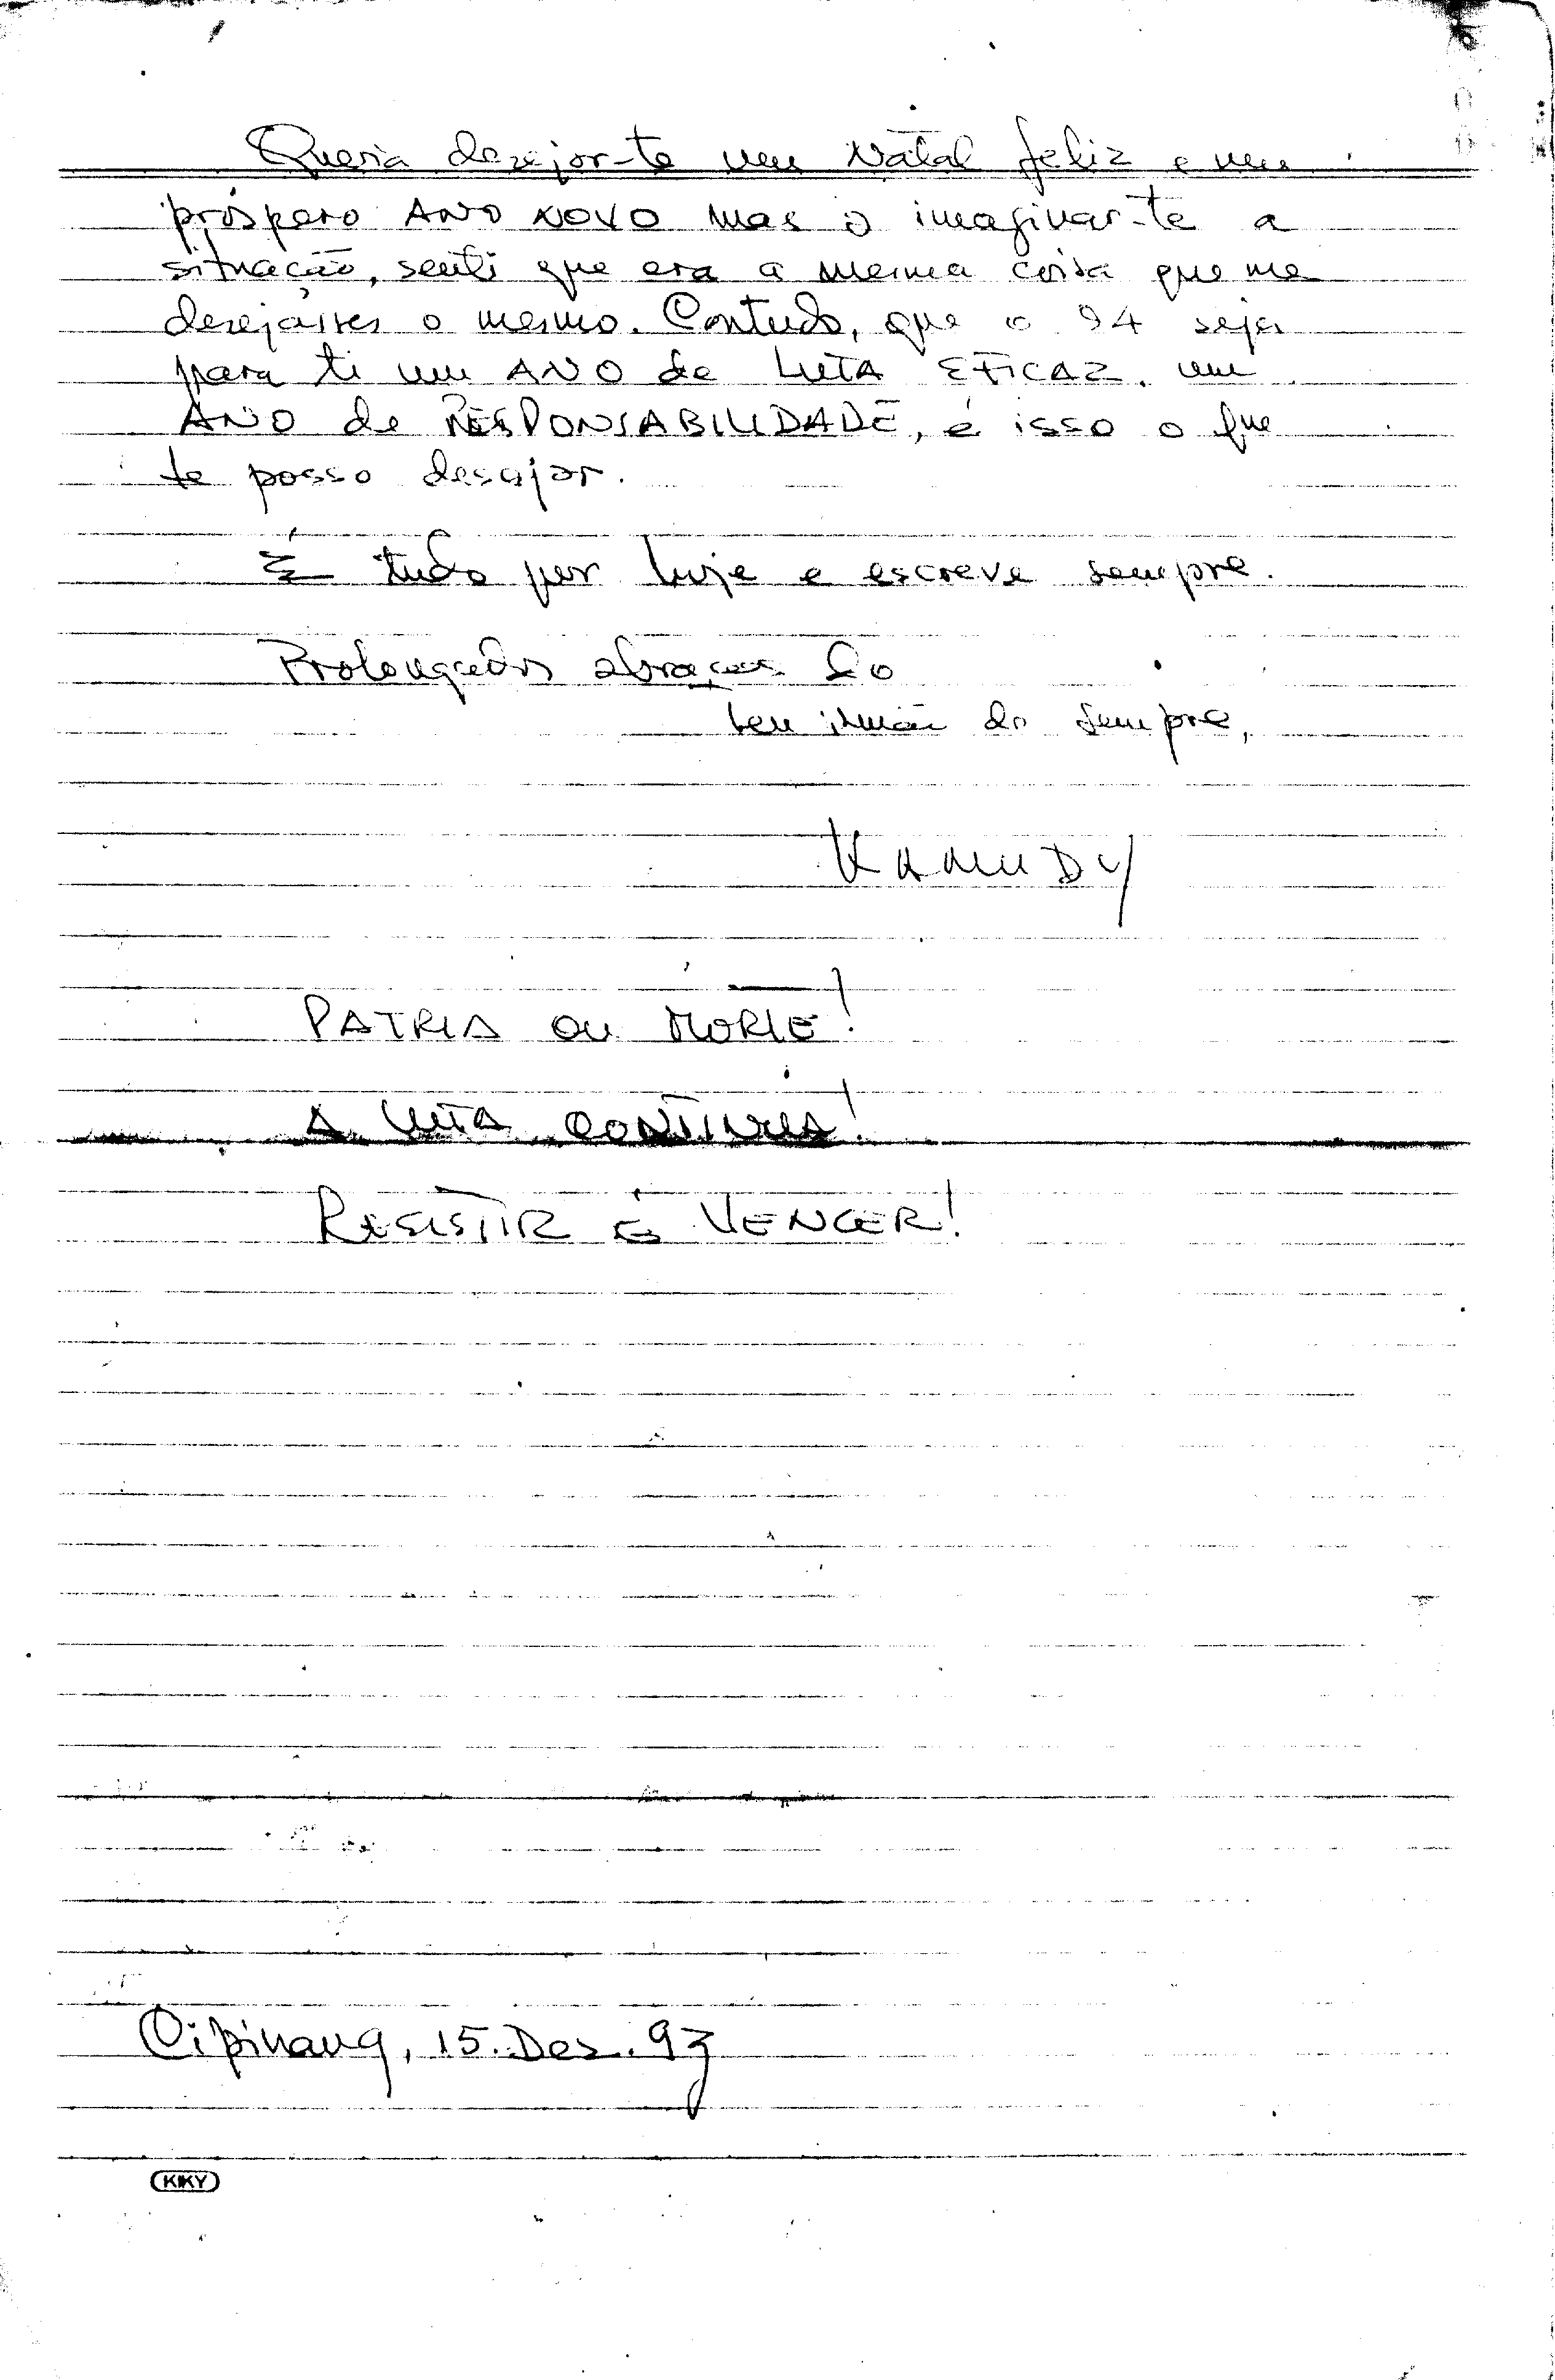 Queria desejar-te um Natal feliz e um
próspero ANO NOVO mas o imaginar-te a
situação, senti que era a mesma coisa que me
desejásses o mesmo. Contudo, que o 94 seja
para ti um ANO de LUTA EFICAZ, um
ANO de RESPONSABILIDADE, é isso o que
te posso desejar.
É tudo por hoje e escreve sempre.
Prolongados abraços do
teu irmão de sempre,
KAMUDY
PATRIA OU MORTE!
A LUTA CONTINUA!
RESISTIR É VENCER!
Cipinang, 15.Dez.93
KIKY